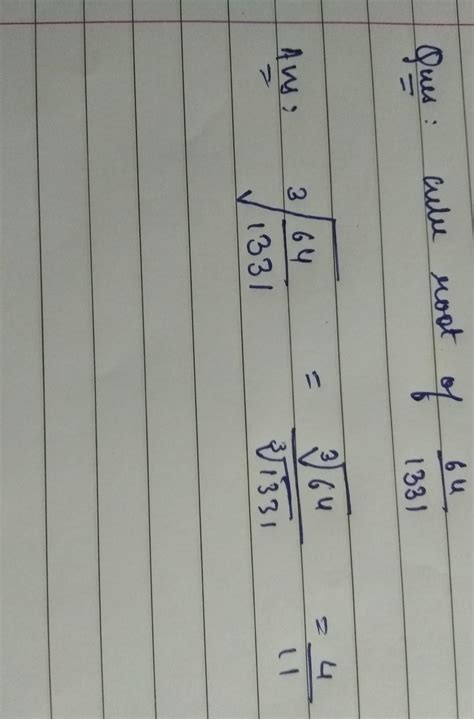 Ques: cube root of 64/1331
Ans: ∛(64/1331) = ∛64/∛1331 = 4/11